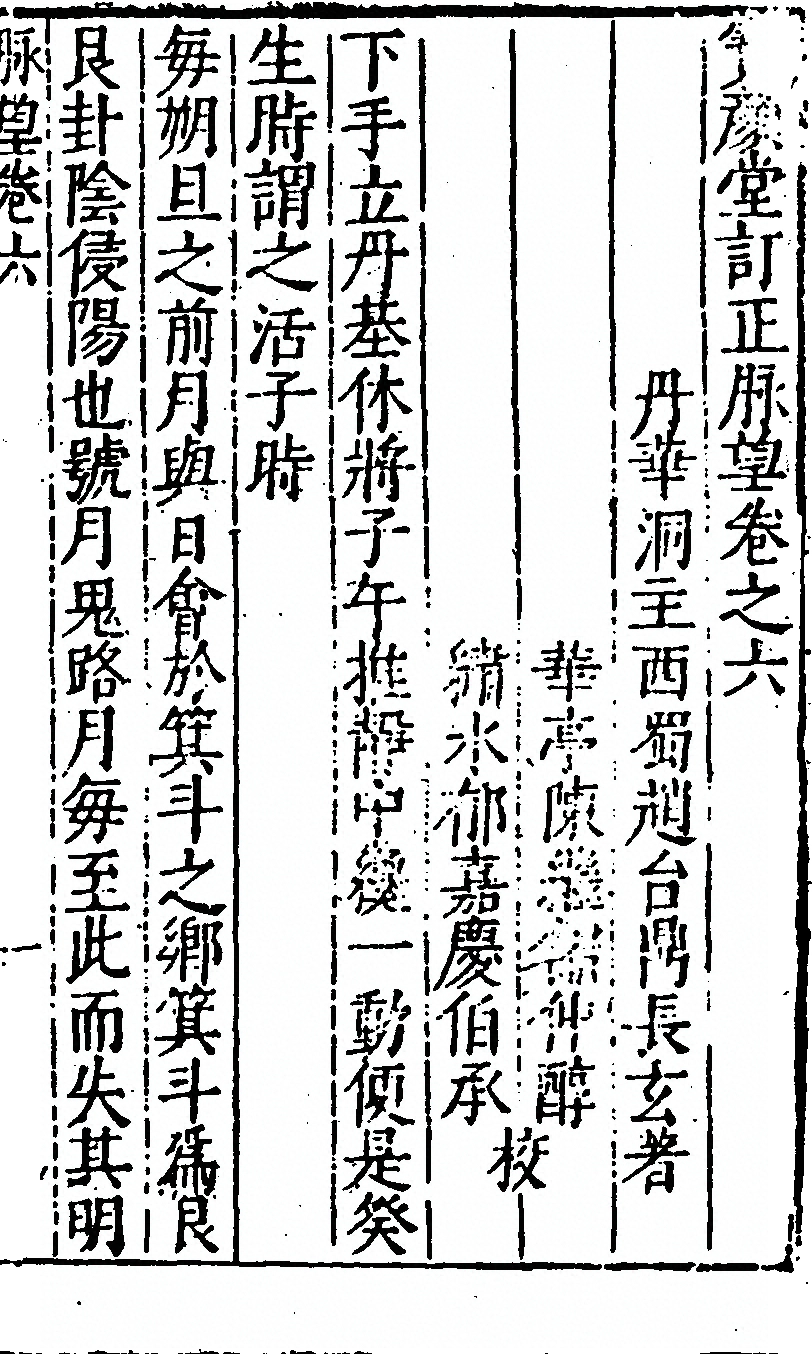 顏堂訂正脉望卷之六
丹華洞主西蜀趙台鼎長玄著
華亭陳繼儒仲醇
繡水郁嘉慶伯承
校
下手立丹基休將子午推靜中纔一動便是癸
生時謂之活子時
每朔旦之前月與日會於箕斗之鄉箕斗爲艮
艮卦陰侵陽也號月鬼路月每至此而失其明
脉望卷六
一